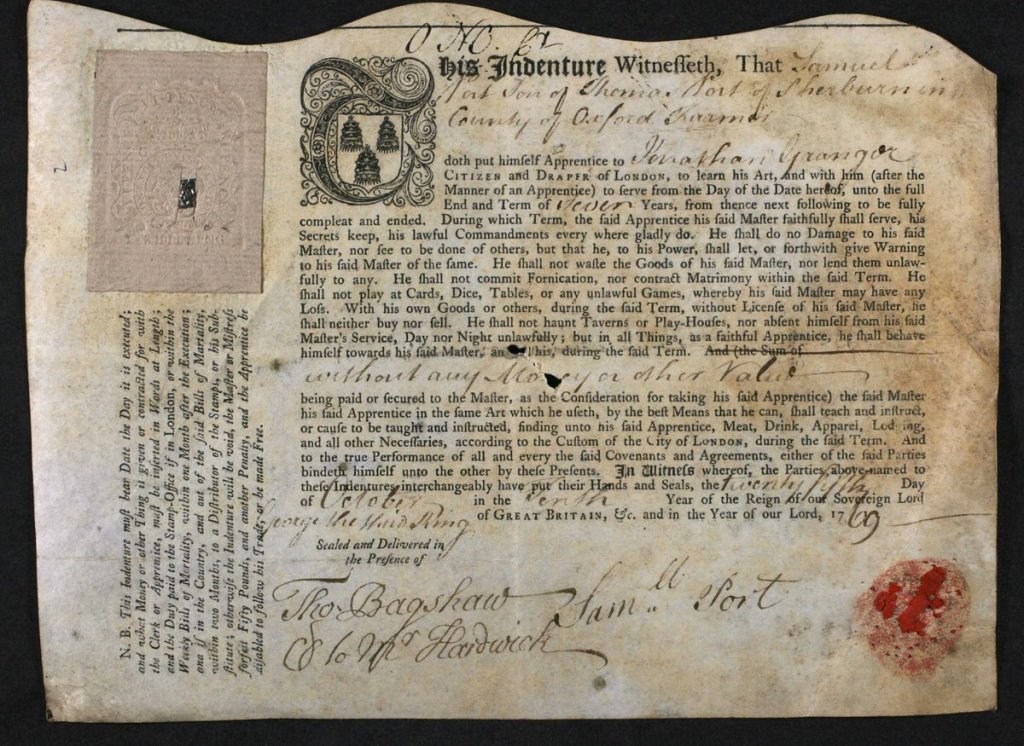 This Indenture Witnesseth, That Samuel
Port Son of Thomas Port of Sherburn in
County of Oxford Farmer
doth put himself Apprentice to Jonathan Granger
CITIZEN and DRAPER of LONDON, to learn his Art, and with him (after the
Manner of an Apprentice) to serve from the Day of the Date hereof, unto the full
End and Term of Seven Years, from thence next following to be fully
compleat and ended. During which Term, the said Apprentice his said Master faithfully shall serve, his
Secrets keep, his lawful Commandments every where gladly do. He shall do no Damage to his said
Master, nor see to be done of others, but that he, to his Power, shall let, or forthwith give Warning
to his said Master of the same. He shall not waste the Goods of his said Master, nor lend them unlaw-
fully to any. He shall not commit Fornication, nor contract Matrimony within the said Term. He
shall not play at Cards, Dice, Tables, or any unlawful Games, whereby his said Master may have any
Loss. With his own Goods or others, during the said Term, without License of his said Master, he
shall neither buy nor sell. He shall not haunt Taverns or Play-Houses, nor absent himself from his said
Master's Service, Day nor Night unlawfully; but in all Things, as a faithful Apprentice, he shall behave
himself towards his said Master, and all his, during the said Term. And (the Sum of
without any Money or other Value
being paid or secured to the Master, as the Consideration for taking his said Apprentice) the said Master
his said Apprentice in the same Art which he useth, by the best Means that he can, shall teach and instruct,
or cause to be taught and instructed, finding unto his said Apprentice, Meat, Drink, Apparel, Lodging,
and all other Necessaries, according to the Custom of the City of LONDON, during the said Term. And
to the true Performance of all and every the said Covenants and Agreements, either of the said Parties
bindeth himself unto the other by these Presents. In Witness whereof, the Parties above-named to
these Indentures interchangeably have put their Hands and Seals, the twenty fifth Day
of October in the Tenth Year of the Reign of our Sovereign Lord
George the third King of GREAT BRITAIN, &c. and in the Year of our Lord, 1769
Sealed and Delivered in
the Presence of
Tho. Bagshaw
Cl to Mr Hardwick
Samll Port
N. B. This Indenture must bear Date the Day it is executed;
and what Money or other Thing is given or contracted for with
the Clerk or Apprentice, must be inserted in Words at Length;
and the Duty paid to the Stamp-Office if in London, or within the
Weekly Bills of Mortality, within one Month after the Execution;
one if in the Country, and out of the said Bills of Mortality,
within two Months, to a Distributor of the Stamps, or his Sub-
stitute; otherwise the Indenture will be void, the Master or Mistress
forfeit Fifty Pounds, and another Penalty, and the Apprentice be
disabled to follow his Trade, or be made Free.